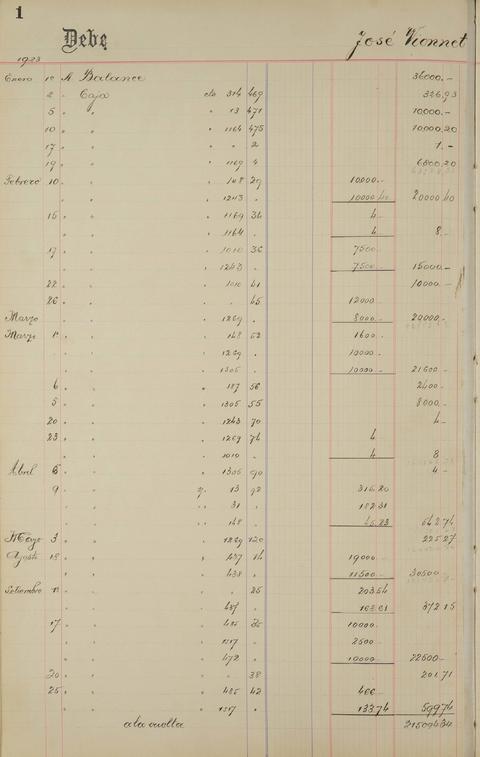 1
Debe José Vionnet
1923
Enero 1º A Balance 36000.-
2 " Caja c/a 314 469 326,93
5 " " " 13 471 10,000.-
10 " " " 1164 475 10,000,20
17 " " " " 2 1.-
19 " " " 1169 4 6800,20
Febrero 10 " " " 148 29 10000.-
" " " 1243 " 10000 40 20000 40
15 " " " 1169 34 4
" " " 1164 " 4 8.-
17 " " " 1010 36 7500
" " " 1243 " 7500 15000.-
22 " " " 1010 41 10000.-
26 " " " " 45 12000
Marzo " " " 1269 " 8000 20000.-
Marzo 1º " " " 148 52 1600
" " " 1269 " 10000
" " " 1305 " 10000 21600
6 " " " 187 56 2400
5 " " " 1305 55 8000
20 " " " 1243 70 4
23 " " " 1269 74 4
" " " 1010 " 4 8
Abril 6 " " " 1305 90 4
9 " " 13 92 316.20
" " " 31 " 182.31
" " " 148 " 45.23 542.74
Mayo 3 " " " 1269 120 225 27
Agosto 18 " " " 437 14 19000
" " " 438 " 11500 30500
Setiembre 11 " " " " 25 203.54
" " " 437 " 168.61 372 15
17 " " " 485 35 10000
" " " 1317 " 2500
" " " 472 " 10000 22500
20 " " " " 38 201.71
25 " " " 485 42 466
" " " 1317 " 133.74 599.74
a la vuelta